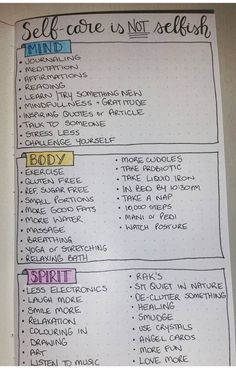 Self-care is NOT selfish
MIND
• JOURNALING
• MEDITATION
• AFFIRMATIONS
• READING
• LEARN / TRY SOMETHING NEW
• MINDFULNESS + GRATITUDE
• INSPIRING QUOTES or ARTICLE
• TALK TO SOMEONE
• STRESS LESS
• CHALLENGE YOURSELF
BODY
• EXERCISE
• GLUTEN FREE
• REF. SUGAR FREE
• SMALL PORTIONS
• MORE GOOD FATS
• MORE WATER
• MASSAGE
• BREATHING
• YOGA or STRETCHING
• RELAXING BATH
• MORE CUDDLES
• TAKE PROBIOTIC
• TAKE LIQUID IRON
• IN BED BY 10:30PM
• TAKE A NAP
• 10,000 STEPS
• MANI or PEDI
• WATCH POSTURE
SPIRIT
• LESS ELECTRONICS
• LAUGH MORE
• SMILE MORE
• RELAXATION
• COLOURING IN
• DRAWING
• ART
• LISTEN TO MUSIC
• RAK'S
• SIT QUIET IN NATURE
• DE-CLUTTER SOMETHING
• HEALING
• SMUDGE
• USE CRYSTALS
• ANGEL CARDS
• MORE FUN
• LOVE MORE